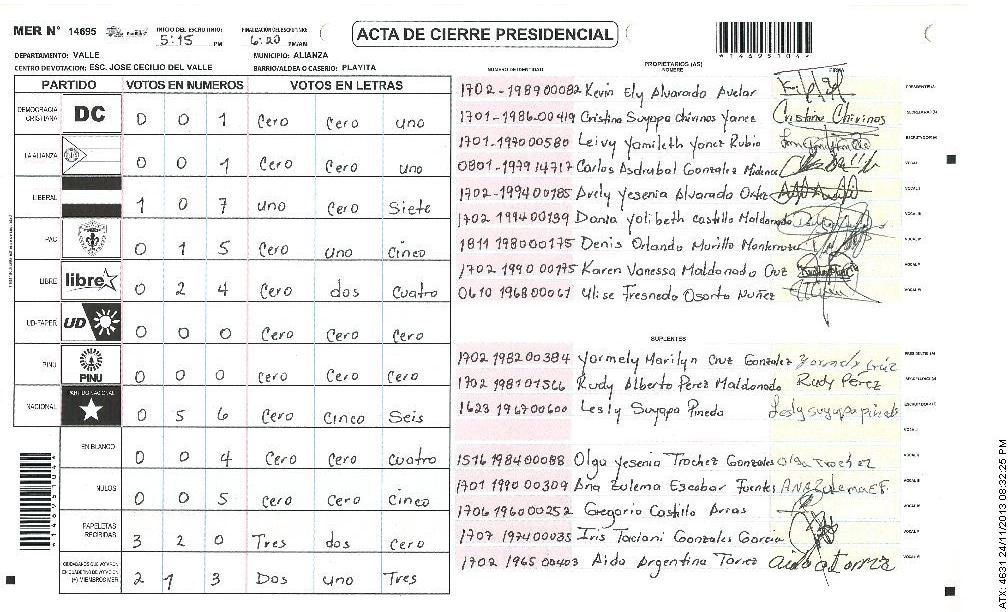 MER N° 14695 INICIO DEL ESCRUTINIO: 5:15 PM FINALIZACION DEL ESCRUTINIO: 6:20 PM/AM
ACTA DE CIERRE PRESIDENCIAL
14695104
DEPARTAMENTO: VALLE MUNICIPIO: ALIANZA
CENTRO DE VOTACION: ESC. JOSE CECILIO DEL VALLE BARRIO/ALDEA O CASERIO: PLAYITA
PARTIDO VOTOS EN NUMEROS VOTOS EN LETRAS
DEMOCRACIA CRISTIANA DC 0 0 1 Cero Cero uno
LA ALIANZA 0 0 1 Cero Cero uno
LIBERAL 1 0 7 uno Cero Siete
PAC 0 1 5 Cero uno Cinco
LIBRE libre 0 2 4 Cero dos Cuatro
UD-FAPER UD 0 0 0 Cero Cero Cero
PINU PINU 0 0 0 Cero Cero Cero
NACIONAL PARTIDO NACIONAL 0 5 6 Cero Cinco Seis
EN BLANCO 0 0 4 Cero Cero Cuatro
NULOS 0 0 5 Cero Cero Cinco
PAPELETAS RECIBIDAS 3 2 0 Tres dos Cero
CIUDADANOS QUE VOTARON EN CUADERNO DE VOTACION (+) MIEMBROS MER 2 1 3 Dos uno Tres
PROPIETARIOS (AS)
NUMERO DE IDENTIDAD NOMBRE FIRMA
1702-198900082 Kevin Ely Alvarado Avelar PRESIDENTE(A)
1701-1986-00419 Cristina Suyapa Chirinos Yanez Cristina Chirinos SECRETARIO(A)
1701-199000580 Leivy Yamileth Yanez Rubio ESCRUTADOR(A)
0801-197914717 Carlos Asdrubal Gonzalez Midence VOCAL I
1702-199400185 Arely Yesenia Alvarado Ortiz VOCAL II
1702 199400189 Dania Yolibeth Castillo Maldonado VOCAL III
1811 198000175 Denis Orlando Murillo Monterrosa VOCAL IV
1702 1990 00175 Karen Vanessa Maldonado Cruz VOCAL V
0610 196800067 Ulise Fresnedo Osorto Nuñez VOCAL VI
SUPLENTES
1702 198200384 Yormely Marilyn Cruz Gonzalez Yormely Cruz PRESIDENTE(A)
1702 198101566 Rudy Alberto Perez Maldonado Rudy Perez SECRETARIO(A)
1623 196700600 Lesly Suyapa Pineda Lesly suyapa pineda ESCRUTADOR(A)
VOCAL I
1516 198400088 Olga Yesenia Trochez Gonzales Olga Trochez VOCAL II
1701 1990 00309 Ana Eulema Escobar Fuentes ANA Eulema E F. VOCAL III
1706 196000252 Gregorio Castillo Arias
1707 197400035 Iris Taciani Gonzales Garcia VOCAL V
1702 1965 00403 Aida Argentina Torrez Aida Torrez VOCAL VI
ATX: 4631 24/11/2013 08:32:25 PM